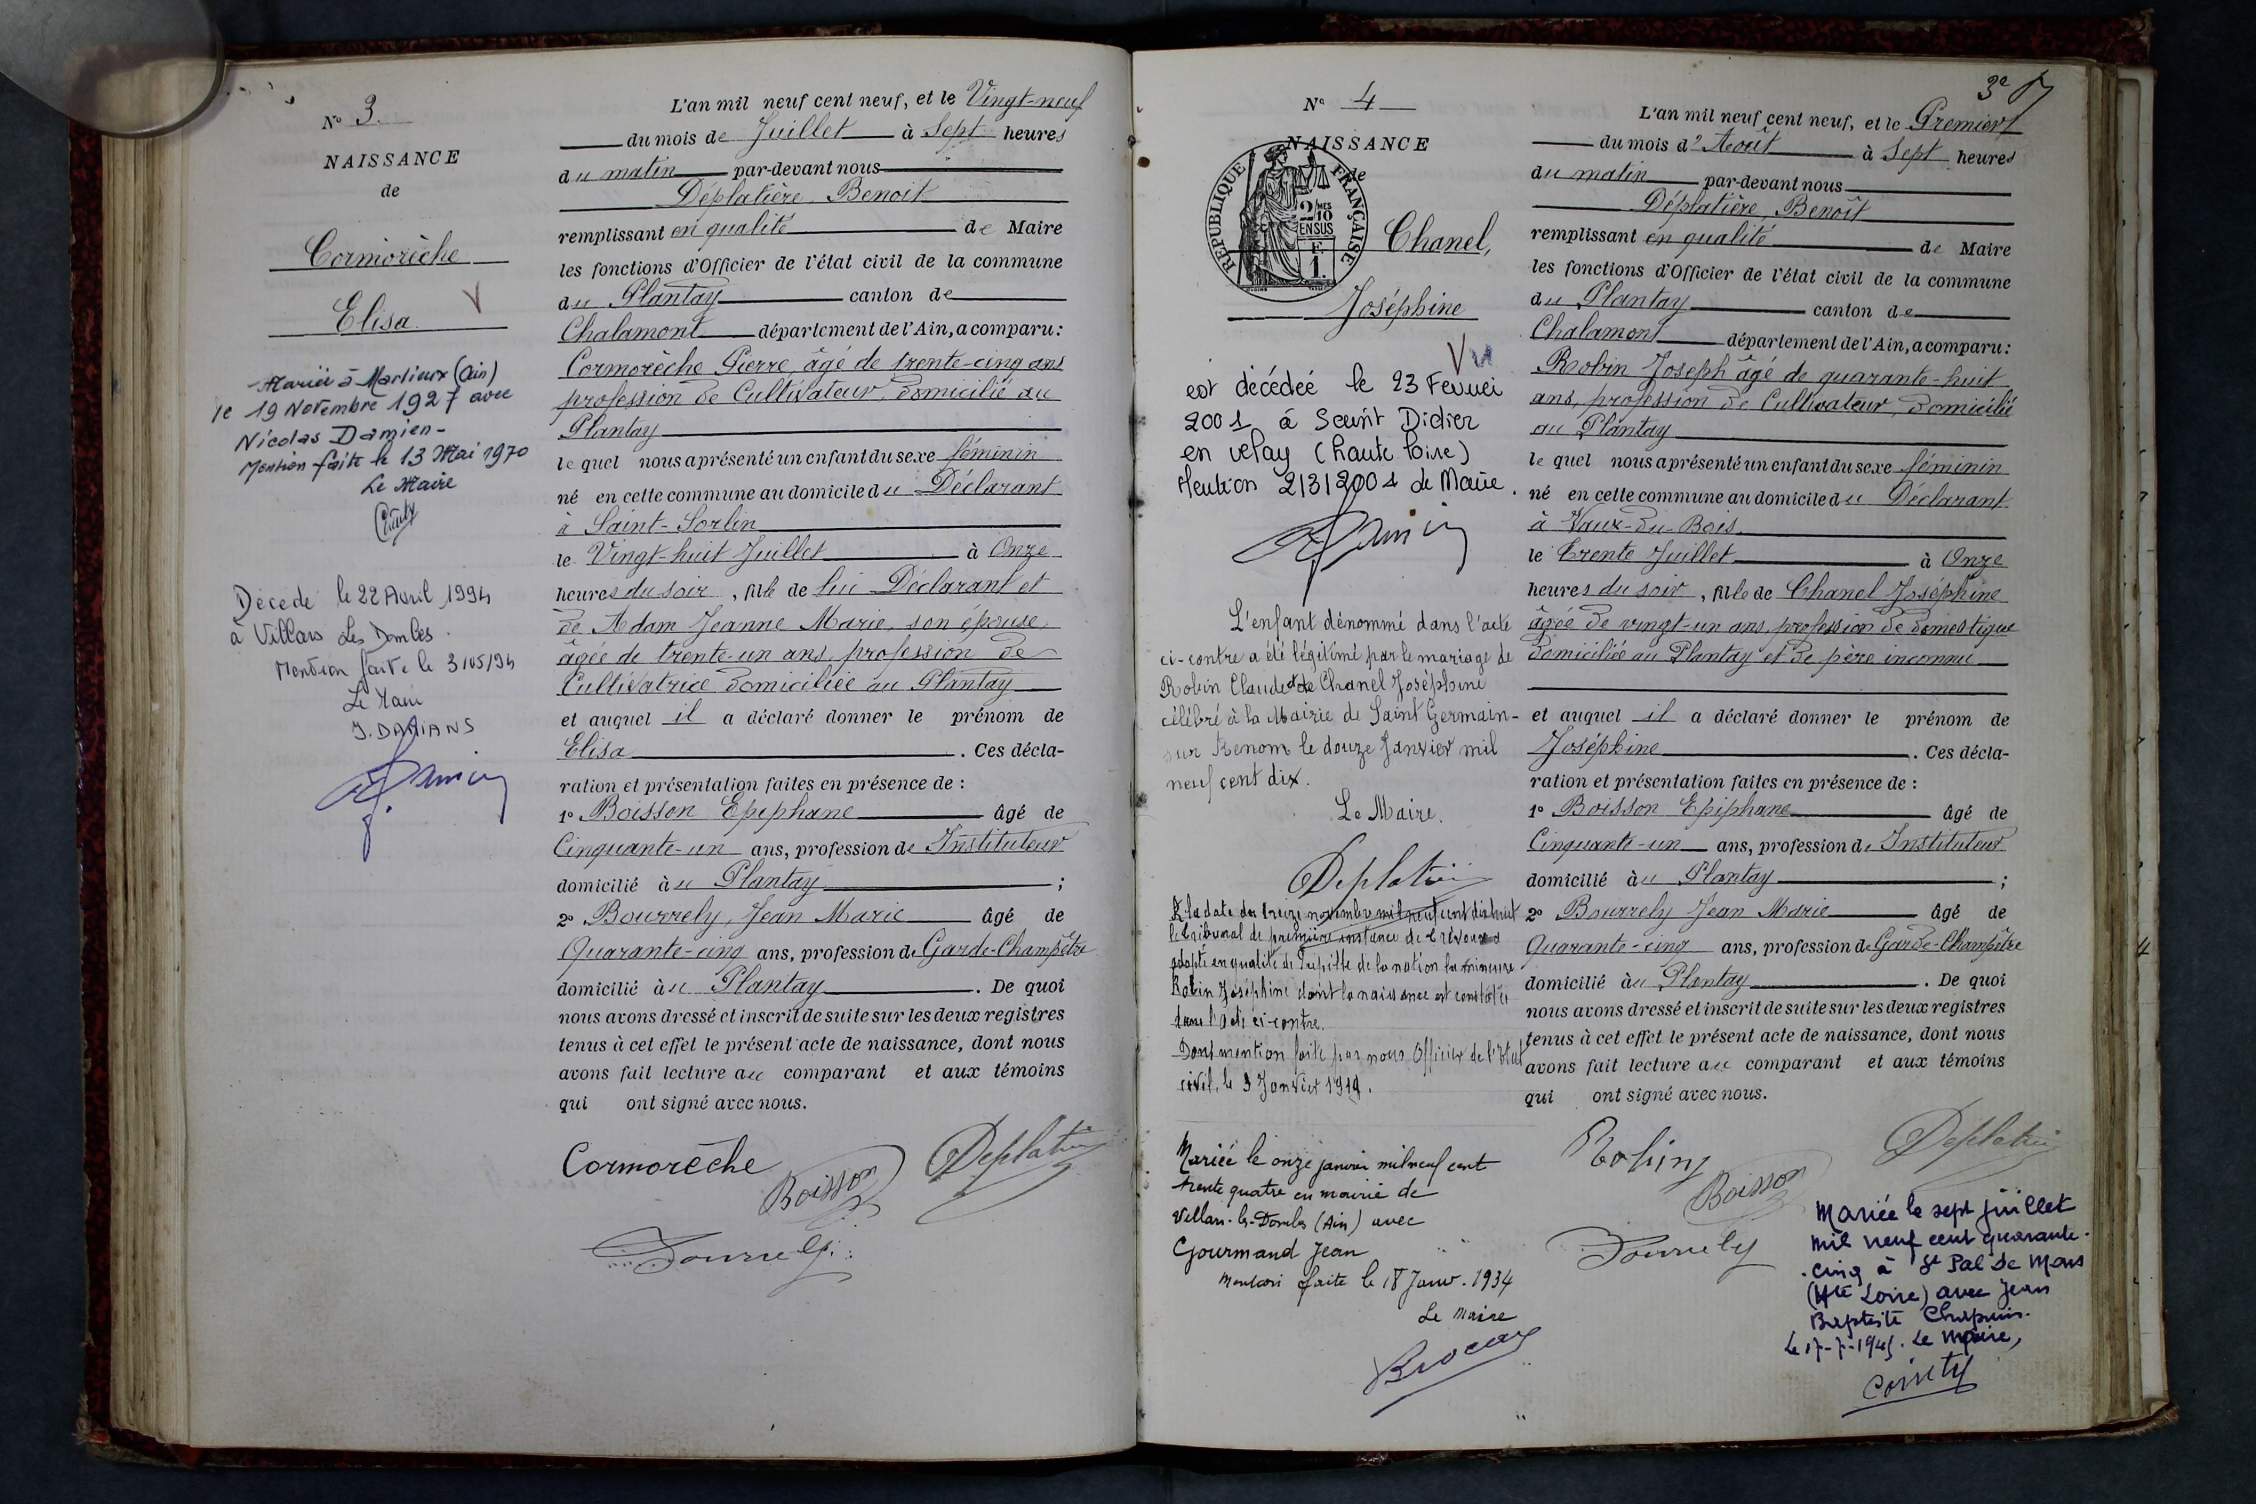 N° 3.
NAISSANCE
de
Cormorèche
Elisa
V
Mariée à Marlieux (Ain)
le 19 Novembre 1927 avec
Nicolas Damien-
Mention faite le 13 Mai 1970
Le Maire
Décédé le 22 Avril 1994
à Villars Les Dombes.
Mention faite le 3/05/94
Le Maire
J. DAMIANS
L'an mil neuf cent neuf, et le Vingt-neuf
du mois de Juillet à Sept heures
du matin par-devant nous
Déplatière Benoit
remplissant en qualité de Maire
les fonctions d'Officier de l'état civil de la commune
du Plantay canton de
Chalamont département de l'Ain, a comparu :
Cormorèche Pierre, âgé de trente-cinq ans
profession de Cultivateur, domicilié au
Plantay
le quel nous a présenté un enfant du sexe féminin
né en cette commune au domicile du Déclarant
à Saint-Sorlin
le Vingt-huit Juillet à Onze
heures du soir, fille de lui Déclarant et
de Adam Jeanne Marie, son épouse,
âgée de trente-un ans, profession de
Cultivatrice domiciliée au Plantay
et auquel il a déclaré donner le prénom de
Elisa. Ces décla-
ration et présentation faites en présence de :
1° Boisson Epiphane âgé de
Cinquante-un ans, profession d'Instituteur
domicilié au Plantay ;
2° Bourrely, Jean Marie âgé de
Quarante-cinq ans, profession de Garde-Champêtre
domicilié au Plantay. De quoi
nous avons dressé et inscrit de suite sur les deux registres
tenus à cet effet le présent acte de naissance, dont nous
avons fait lecture au comparant et aux témoins
qui ont signé avec nous.
Cormorèche
Boisson
Deplatière
Bourrely
N° 4
NAISSANCE
de
REPUBLIQUE FRANÇAISE
2/10 MES
EN SUS
F.
1.
Chanel,
Joséphine
Vu
est décédée le 23 Fevrier
2001 à Saint Didier
en velay (haute loire)
Mention 2/3/2001 le Maire.
L'enfant dénommé dans l'acte
ci-contre a été légitimé par le mariage de
Robin Claude et de Chanel Joséphine
célébré à la Mairie de Saint Germain-
sur Renom le douze Janvier mil
neuf cent dix.
Le Maire.
Deplatière
A la date du treize novembre mil neuf cent dix huit
le tribunal de première instance de Trévoux a
adopté en qualité de Pupille de la nation la mineure
Robin Joséphine dont la naissance est constatée
dans l'acte ci-contre.
Dont mention faite par nous Officier de l'Etat
civil, le 9 Janvier 1919.
Mariée le onze janvier mil neuf cent
trente quatre en mairie de
Villars-les-Dombes (Ain) avec
Gourmand Jean
Mention faite le 18 Janv. 1934
Le Maire
3e
L'an mil neuf cent neuf, et le Premier
du mois d'Août à Sept heures
du matin par-devant nous
Déplatière, Benoît
remplissant en qualité de Maire
les fonctions d'Officier de l'état civil de la commune
du Plantay canton de
Chalamont département de l'Ain, a comparu :
Robin Joseph âgé de quarante-huit
ans, profession de Cultivateur, domicilié
au Plantay
le quel nous a présenté un enfant du sexe féminin
né en cette commune au domicile du Déclarant
à Vaux-du-Bois
le Trente Juillet à Onze
heures du soir, fille de Chanel Joséphine
âgée de vingt-un ans, profession de domestique
domiciliée au Plantay et de père inconnu
et auquel il a déclaré donner le prénom de
Joséphine. Ces décla-
ration et présentation faites en présence de :
1° Boisson Epiphane âgé de
Cinquante-un ans, profession d'Instituteur
domicilié au Plantay ;
2° Bourrely Jean Marie âgé de
Quarante-cinq ans, profession de Garde-Champêtre
domicilié au Plantay. De quoi
nous avons dressé et inscrit de suite sur les deux registres
tenus à cet effet le présent acte de naissance, dont nous
avons fait lecture au comparant et aux témoins
qui ont signé avec nous.
Robin
Boisson
Deplatière
Bourrely
Mariée le sept juillet
mil neuf cent quarante-
cinq à St Pal de Mons
(Hte Loire) avec Jean
Baptiste Chapuis.
Le 17-7-1945. Le Maire,